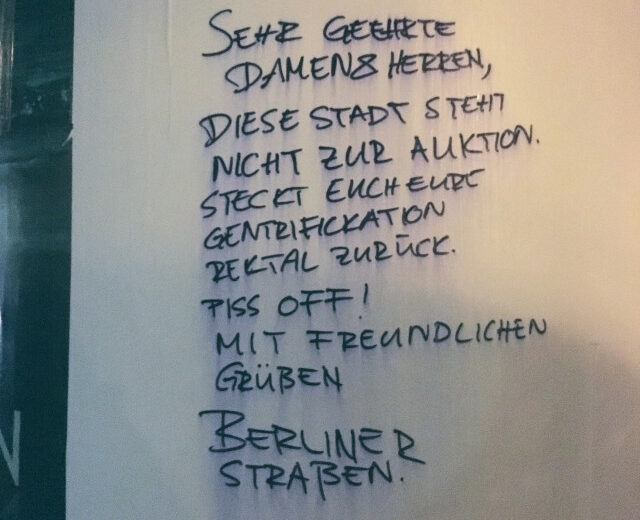 SEHR GEEHRTE
DAMEN & HERREN,
DIESE STADT STEHT
NICHT ZUR AUKTION.
STECKT EUCH EURE
GENTRIFICKATION
REKTAL ZURÜCK.
PISS OFF!
MIT FREUNDLICHEN
GRÜßEN
BERLINER
STRAßEN.
N